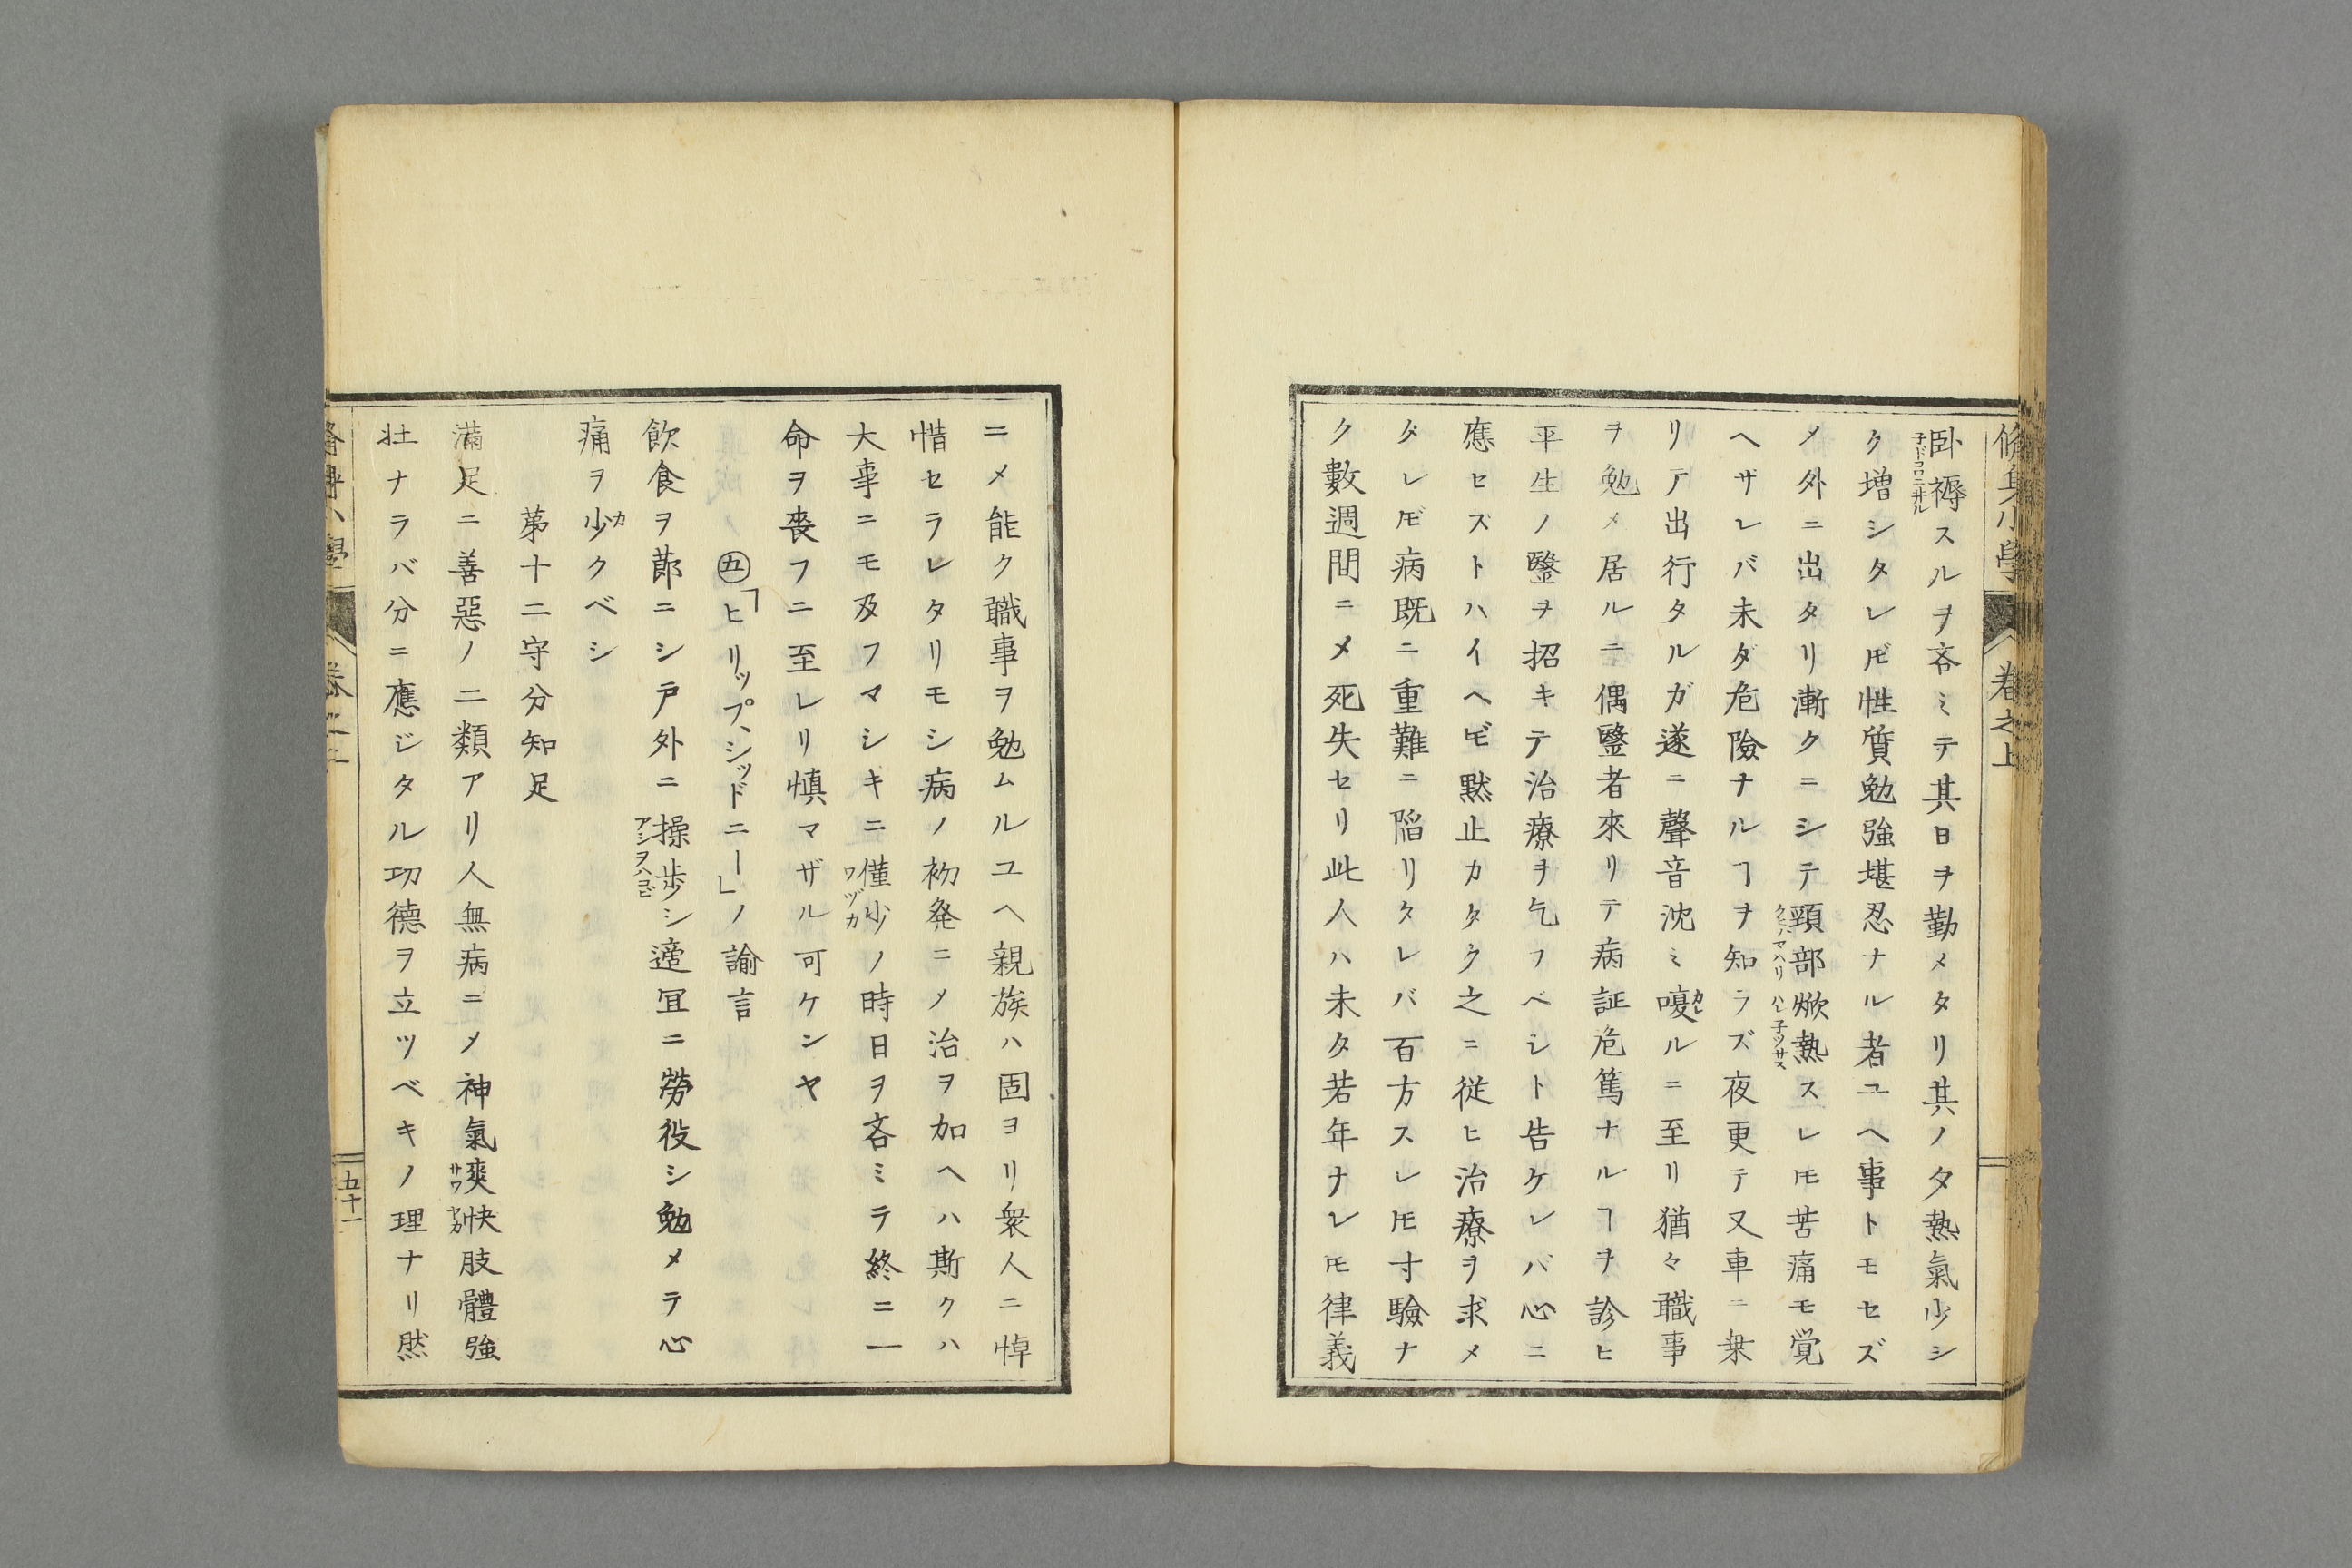 脩身小學 卷之上
卧褥スルヲ吝ミテ其日ヲ勤メタリ其ノ夕熱氣少シ
ク増シタレ𪜈性質勉強堪忍ナル者ユヘ事トモセズ
メ外ニ出タリ漸クニシテ頸部焮熱スレ𪜈苦痛モ覚
ヘザレバ未ダ危險ナルヿヲ知ラズ夜更テ又車ニ乗
リテ出行タルガ遂ニ聲音沈ミ嗄ルニ至リ猶々職事
ヲ勉メ居ルニ偶毉者來リテ病証危篤ナルヿヲ診ヒ
平生ノ毉ヲ招キテ治療ヲ乞フベシト告ケレバ心ニ
應セズトハイヘ𪜈黙止カタク之ニ従ヒ治療ヲ求メ
タレ𪜈病既ニ重難ニ陷リタレバ百方スレ𪜈寸驗ナ
ク數週間ニメ死失セリ此人ハ未タ若年ナレ𪜈律義
ニメ能ク職事ヲ勉ムルユヘ親族ハ固ヨリ衆人ニ悼
惜セラレタリモシ病ノ初発ニメ治ヲ加ヘハ斯クハ
大事ニモ及フマシキニ僅少ノ時日ヲ吝ミテ終ニ一
命ヲ喪フニ至レリ慎マザル可ケンヤ
㊄「ヒリップ、シッドニー」ノ諭言
飲食ヲ莭ニシ戸外ニ操歩シ適冝ニ勞役シ勉メテ心
痛ヲ少クベシ
第十二守分知足
滿足ニ善惡ノ二類アリ人無病ニメ神氣爽快肢體強
壮ナラバ分ニ應ジタル功德ヲ立ツベキノ理ナリ然
五十一